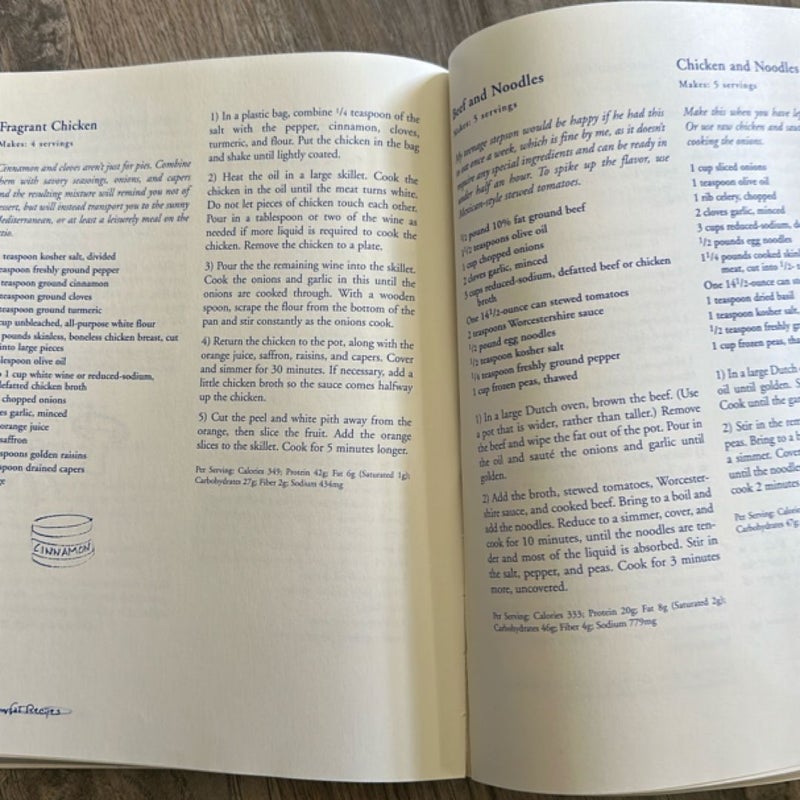 Fragrant Chicken
Makes: 4 servings
Cinnamon and cloves aren't just for pies. Combine
them with savory seasonings, onions, and capers
and the resulting mixture will remind you not of
dessert, but will instead transport you to the sunny
Mediterranean, or at least a leisurely meal on the
teaspoon kosher salt, divided
teaspoon freshly ground pepper
teaspoon ground cinnamon
teaspoon ground cloves
teaspoon ground turmeric
cup unbleached, all-purpose white flour
pounds skinless, boneless chicken breast, cut
into large pieces
olive oil
1 cup white wine or reduced-sodium,
defatted chicken broth
chopped onions
garlic, minced
orange juice
saffron
golden raisins
drained capers
CINNAMON
Recipes
1) In a plastic bag, combine 1/4 teaspoon of the
salt with the pepper, cinnamon, cloves,
turmeric, and flour. Put the chicken in the bag
and shake until lightly coated.
2) Heat the oil in a large skillet. Cook the
chicken in the oil until the meat turns white.
Do not let pieces of chicken touch each other.
Pour in a tablespoon or two of the wine as
needed if more liquid is required to cook the
chicken. Remove the chicken to a plate.
3) Pour the the remaining wine into the skillet.
Cook the onions and garlic in this until the
onions are cooked through. With a wooden
spoon, scrape the flour from the bottom of the
pan and stir constantly as the onions cook.
4) Return the chicken to the pot, along with the
orange juice, saffron, raisins, and capers. Cover
and simmer for 30 minutes. If necessary, add a
little chicken broth so the sauce comes halfway
up the chicken.
5) Cut the peel and white pith away from the
orange, then slice the fruit. Add the orange
slices to the skillet. Cook for 5 minutes longer.
Per Serving: Calories 349; Protein 42g; Fat 6g (Saturated 1g);
Carbohydrates 27g; Fiber 2g; Sodium 434mg
Beef and Noodles
Makes: 5 servings
My teenage stepson would be happy if he had this
to eat once a week, which is fine by me, as it doesn't
require any special ingredients and can be ready in
under half an hour. To spike up the flavor, use
Mexican-style stewed tomatoes.
1/2 pound 10% fat ground beef
1 1/2 teaspoons olive oil
1 cup chopped onions
2 cloves garlic, minced
3 cups reduced-sodium, defatted beef or chicken
broth
One 14 1/2-ounce can stewed tomatoes
2 teaspoons Worcestershire sauce
1/2 pound egg noodles
1/2 teaspoon kosher salt
1/4 teaspoon freshly ground pepper
1 cup frozen peas, thawed
1) In a large Dutch oven, brown the beef. (Use
a pot that is wider, rather than taller.) Remove
the beef and wipe the fat out of the pot. Pour in
the oil and sauté the onions and garlic until
golden.
2) Add the broth, stewed tomatoes, Worcester-
shire sauce, and cooked beef. Bring to a boil and
add the noodles. Reduce to a simmer, cover, and
cook for 10 minutes, until the noodles are ten-
der and most of the liquid is absorbed. Stir in
the salt, pepper, and peas. Cook for 3 minutes
more, uncovered.
Per Serving: Calories 333; Protein 20g; Fat 8g (Saturated 2g);
Carbohydrates 46g; Fiber 4g; Sodium 779mg
Chicken and Noodles
Makes: 5 servings
Make this when you have
Or use raw chicken and
cooking the onions.
1 cup sliced onions
1 teaspoon olive oil
1 rib celery, chopped
2 cloves garlic, minced
3 cups reduced-sodium,
1/2 pounds egg noodles
1 1/4 pounds cooked
meat, cut into 1/2-
One 14 1/2-ounce can
1 teaspoon dried basil
1 teaspoon kosher salt,
1/2 teaspoon freshly
1 cup frozen peas,
1) In a large
oil until golden.
Cook until the
2) Stir in the
peas. Bring to a
a simmer. Cover
until the
cook 2 minutes
Per Serving:
Carbohydrates 47g